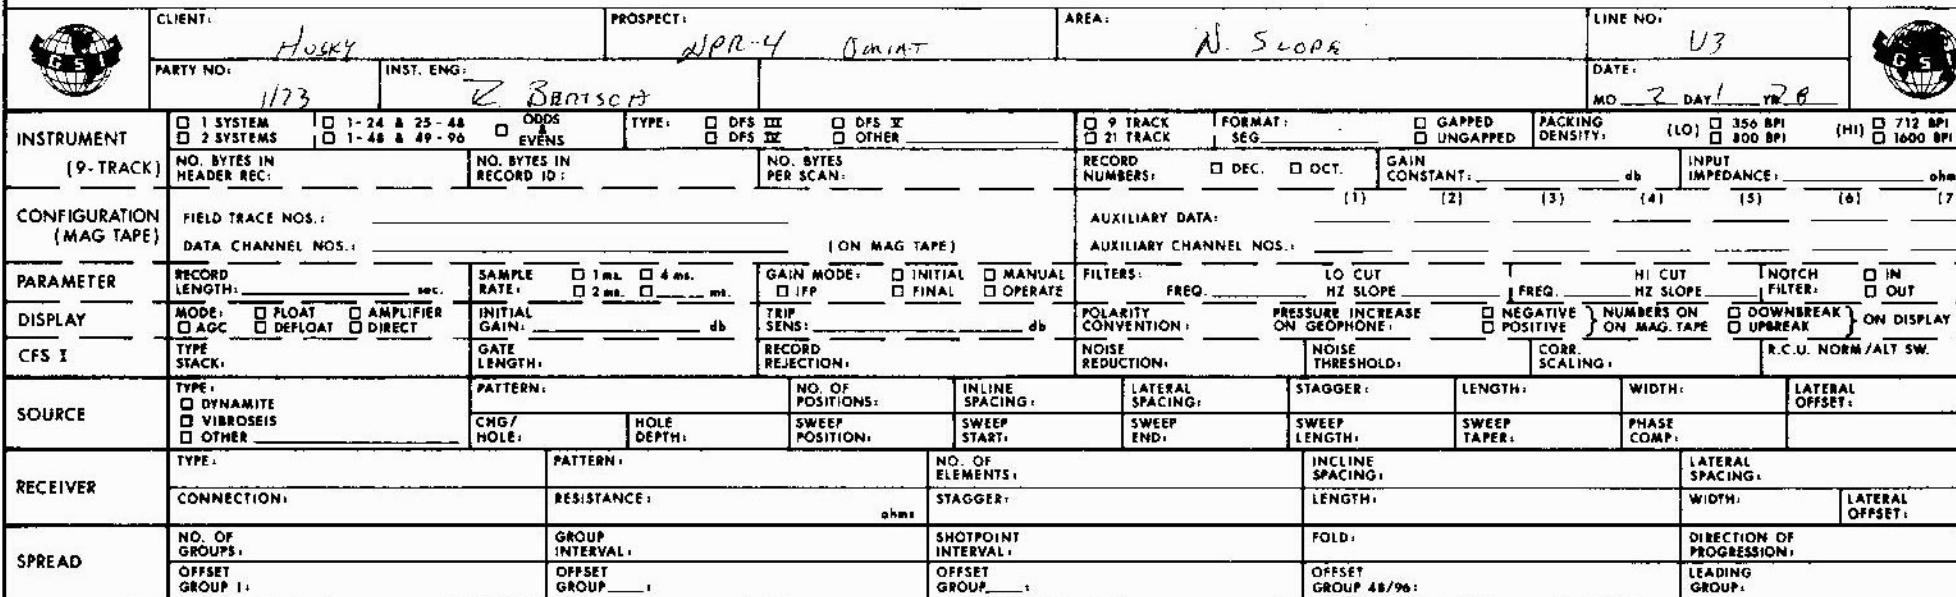 CLIENT: Husky PROSPECT: NPR-4 Umiat AREA: N. Slope LINE NO: U3
GSI GSI
PARTY NO: 1173 INST. ENG: R. Bertsch DATE: MO 2 DAY 1 YR 78
INSTRUMENT (9-TRACK)
□ 1 SYSTEM □ 1-24 & 25-48 □ ODDS & EVENS TYPE: □ DFS III □ DFS V □ 9 TRACK FORMAT: □ GAPPED PACKING DENSITY: (LO) □ 356 BPI (HI) □ 712 BPI
□ 2 SYSTEMS □ 1-48 & 49-96 □ DFS IV □ OTHER □ 21 TRACK SEG □ UNGAPPED □ 800 BPI □ 1600 BPI
NO. BYTES IN HEADER REC: NO. BYTES IN RECORD ID: NO. BYTES PER SCAN: RECORD NUMBERS: □ DEC. □ OCT. GAIN CONSTANT: db INPUT IMPEDANCE: ohm
CONFIGURATION (MAG TAPE)
(1) (2) (3) (4) (5) (6) (7
FIELD TRACE NOS.: AUXILIARY DATA:
DATA CHANNEL NOS.: (ON MAG TAPE) AUXILIARY CHANNEL NOS.:
PARAMETER
RECORD LENGTH: sec. SAMPLE RATE: □ 1 ms. □ 4 ms. □ 2 ms. □ ms. GAIN MODE: □ INITIAL □ MANUAL □ IFP □ FINAL □ OPERATE FILTERS: FREQ. LO CUT HZ SLOPE FREQ. HI CUT HZ SLOPE NOTCH FILTER: □ IN □ OUT
DISPLAY
MODE: □ FLOAT □ AMPLIFIER □ AGC □ DEFLOAT □ DIRECT INITIAL GAIN: db TRIP SENS: db POLARITY CONVENTION: PRESSURE INCREASE ON GEOPHONE: □ NEGATIVE □ POSITIVE } NUMBERS ON ON MAG. TAPE □ DOWNBREAK □ UPBREAK } ON DISPLAY
CFS I TYPE STACK: GATE LENGTH: RECORD REJECTION: NOISE REDUCTION: NOISE THRESHOLD: CORR. SCALING: R.C.U. NORM/ALT SW.
SOURCE
TYPE: □ DYNAMITE □ VIBROSEIS □ OTHER
PATTERN: NO. OF POSITIONS: INLINE SPACING: LATERAL SPACING: STAGGER: LENGTH: WIDTH: LATERAL OFFSET:
CHG/HOLE: HOLE DEPTH: SWEEP POSITION: SWEEP START: SWEEP END: SWEEP LENGTH: SWEEP TAPER: PHASE COMP:
RECEIVER
TYPE: PATTERN: NO. OF ELEMENTS: INCLINE SPACING: LATERAL SPACING:
CONNECTION: RESISTANCE: ohms STAGGER: LENGTH: WIDTH: LATERAL OFFSET:
SPREAD
NO. OF GROUPS: GROUP INTERVAL: SHOTPOINT INTERVAL: FOLD: DIRECTION OF PROGRESSION:
OFFSET GROUP 1: OFFSET GROUP : OFFSET GROUP : OFFSET GROUP 48/96: LEADING GROUP: